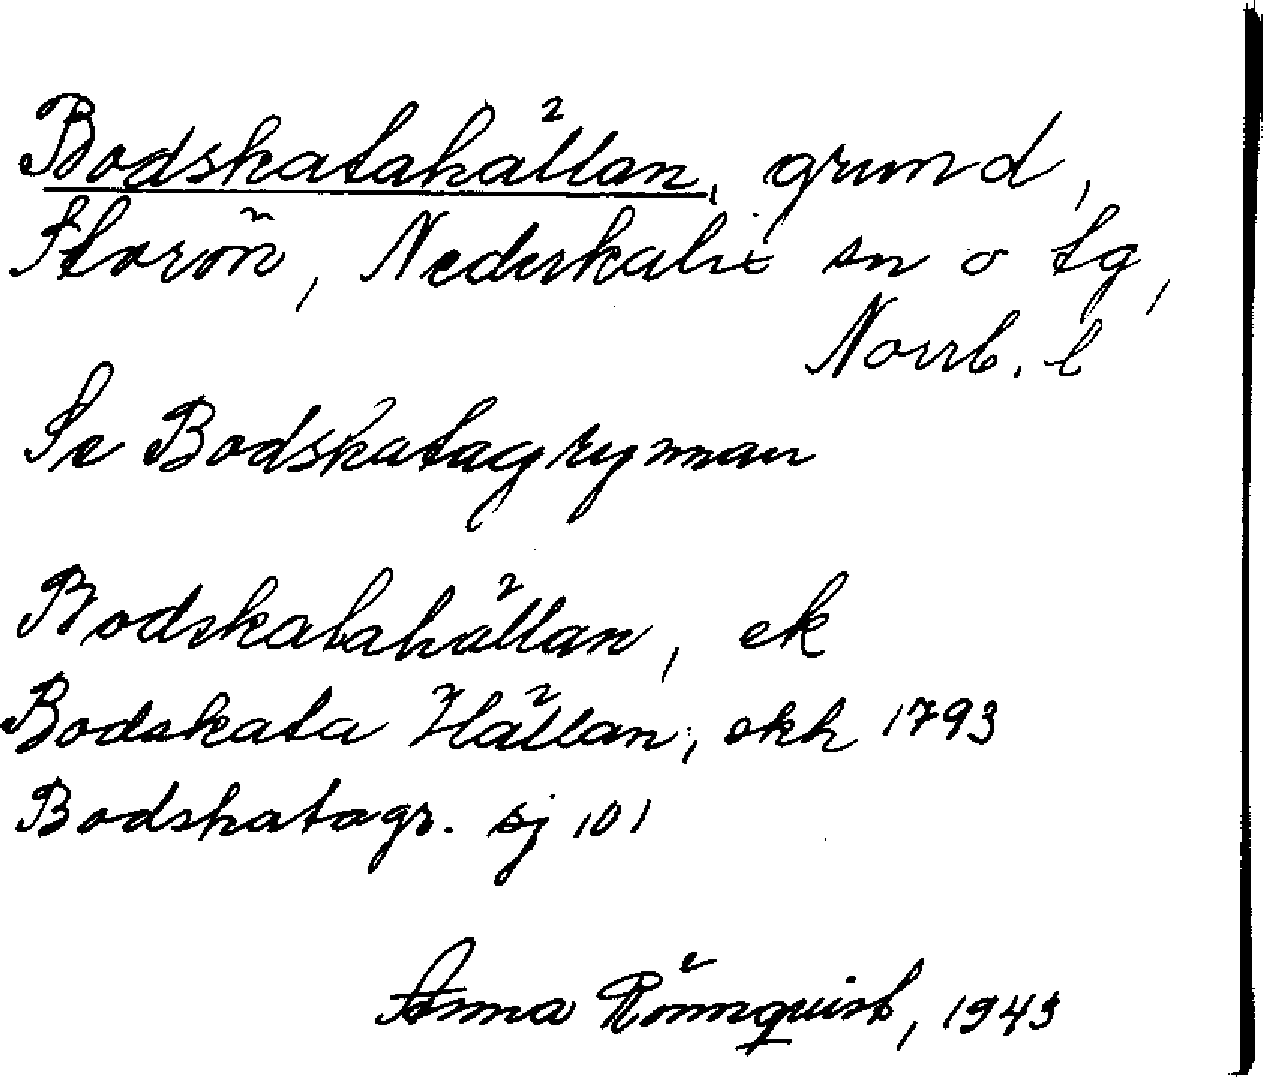 Bodskatahällan, grund,
Storön, Nederkalix sn o tg,
Norrb. l
Se Bodskatagrynnan
Bodskatahällan, ek
Bodskata Hällan, skk 1793
Bodskatagr. sj 101
Anna Rönnquist, 1943